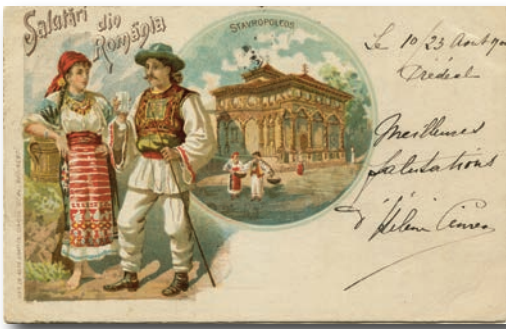 Salutări din
România
STAVROPOLEOS
Le 10/23 Aout
Prédeal
Meilleures
salutations
d'Hélène